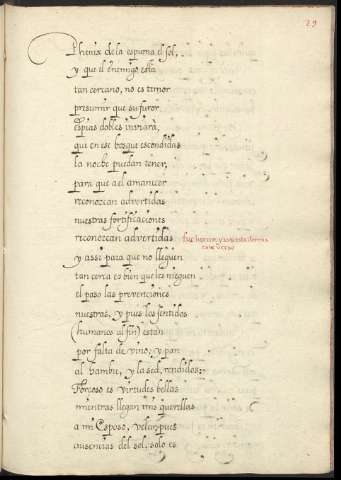 29
Phenix de la espuma el sol,
y que el enemigo esta
tan cercano, no es temor
presumir que su furor
espias dobles inviarà,
que en ese bosque escondidas
la noche puedan tener,
para que a el amanecer
reconozcan advertidas
nuestras fortificaciones
reconozcan advertidas
y assi para que no lleguen
tan cerca es bien que les nieguen
el paso las prevenciones
nuestras, y pues los sentidos
(humanos al fin) estan
por falta de vino, y pan
al hambre, y la sed, rendidos;
Forzoso es virtudes bellas
mientras llegan mis querellas
a mi Esposo, velar, pues
ausencias del sol, solo es